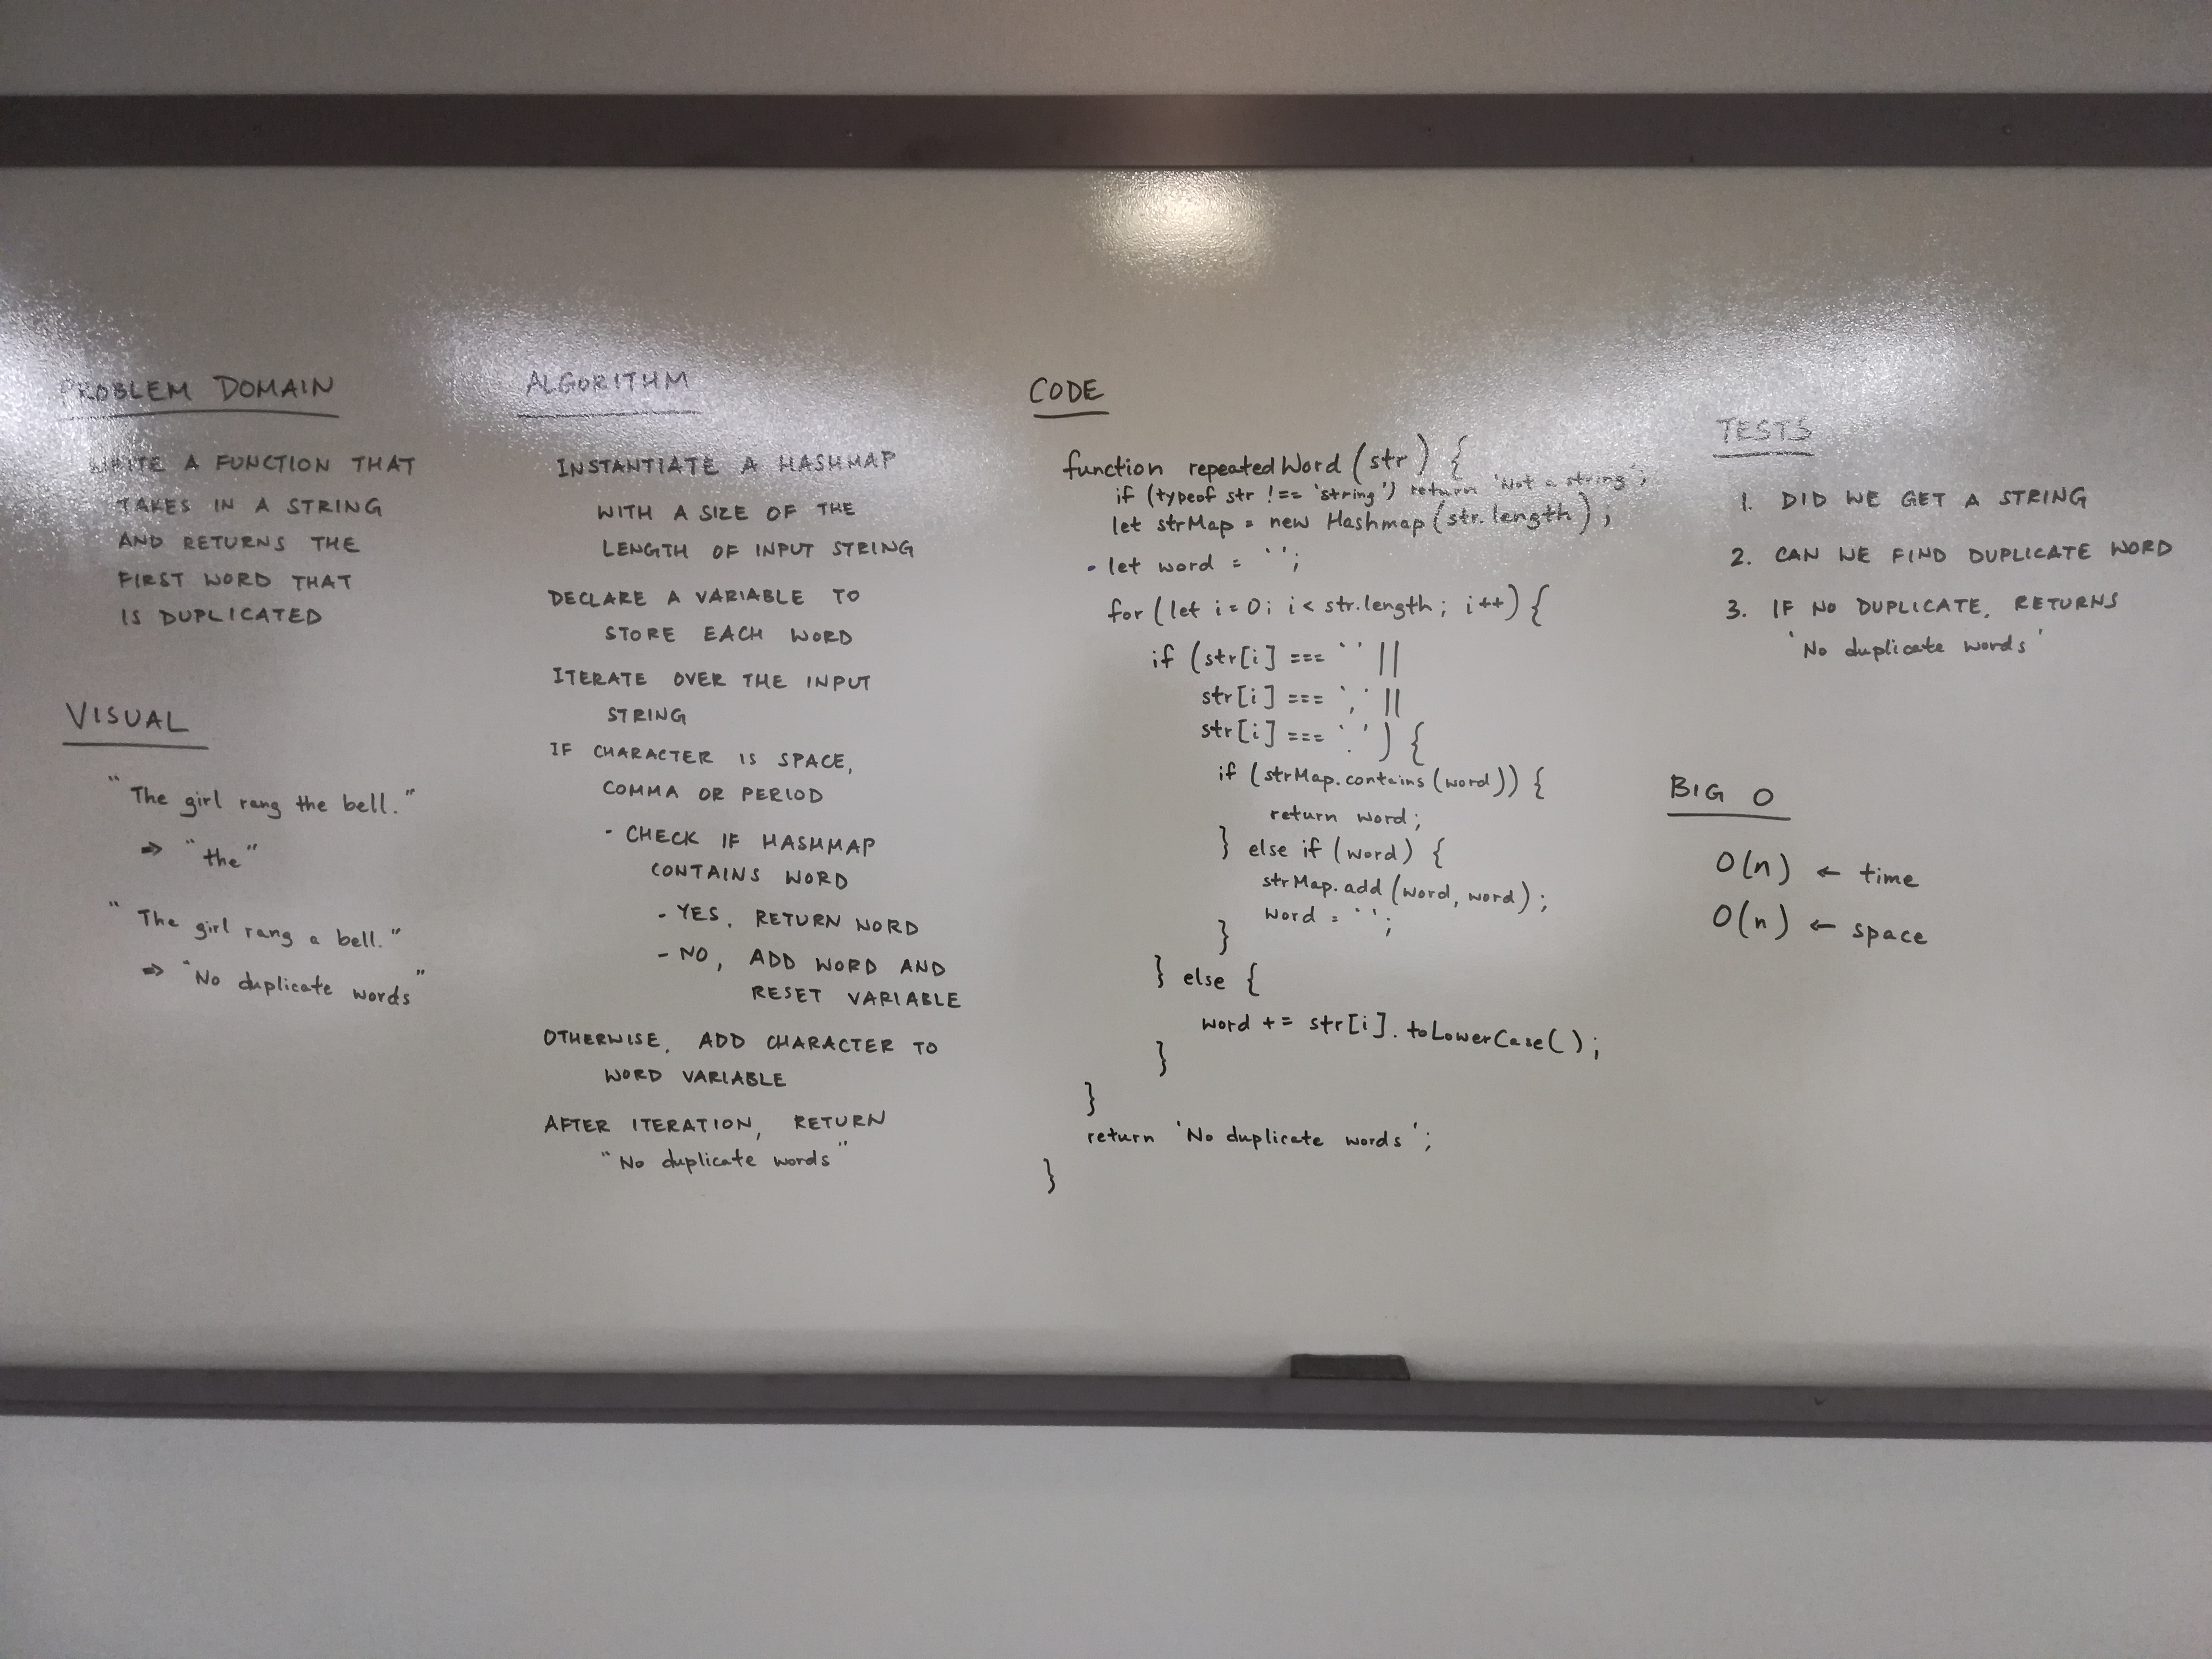 PROBLEM DOMAIN
WRITE A FUNCTION THAT
TAKES IN A STRING
AND RETURNS THE
FIRST WORD THAT
IS DUPLICATED
VISUAL
"The girl rang the bell."
⇒ "the"
"The girl rang a bell."
⇒ "No duplicate words"
ALGORITHM
INSTANTIATE A HASHMAP
WITH A SIZE OF THE
LENGTH OF INPUT STRING
DECLARE A VARIABLE TO
STORE EACH WORD
ITERATE OVER THE INPUT
STRING
IF CHARACTER IS SPACE,
COMMA OR PERIOD
- CHECK IF HASHMAP
CONTAINS WORD
- YES, RETURN WORD
- NO, ADD WORD AND
RESET VARIABLE
OTHERWISE, ADD CHARACTER TO
WORD VARIABLE
AFTER ITERATION, RETURN
"No duplicate words"
CODE
function repeatedWord (str) {
if (typeof str !== 'string') return 'Not a string';
let strMap = new Hashmap (str.length);
let word = ` `;
for (let i = 0; i < str.length; i++) {
if (str[i] === ` ' ||
str[i] === `,' ||
str[i] === `.') {
if (strMap.contains(word)) {
return word;
} else if (word) {
strMap.add(word, word);
word = ` ';
}
} else {
word += str[i].toLowerCase();
}
}
return 'No duplicate words';
}
TESTS
1. DID WE GET A STRING
2. CAN WE FIND DUPLICATE WORD
3. IF NO DUPLICATE, RETURNS
'No duplicate words'
BIG O
O(n) ← time
O(n) ← space